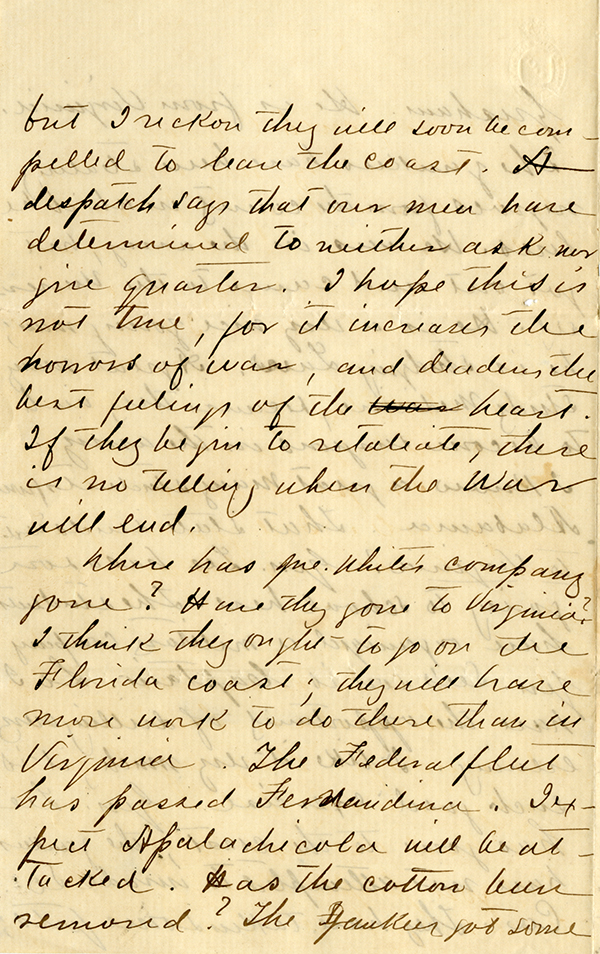 but I reckon they will soon be com-
pelled to leave the coast. A
despatch says that our men have
determined to neither ask nor
give quarter. I hope this is
not true, for it increases the
horrors of war, and deadens the
best feelings of the war heart.
If they begin to retaliate, there
is no telling when the War
will end.
Where has Mr. White's company
gone? Have they gone to Virginia?
I think they ought to go on the
Florida coast; they will have
more work to do there than in
Virginia. The Federal fleet
has passed Fernandina. I ex-
pect Apalachicola will be at-
tacked. Has the cotton been
removed? The Yankees got some